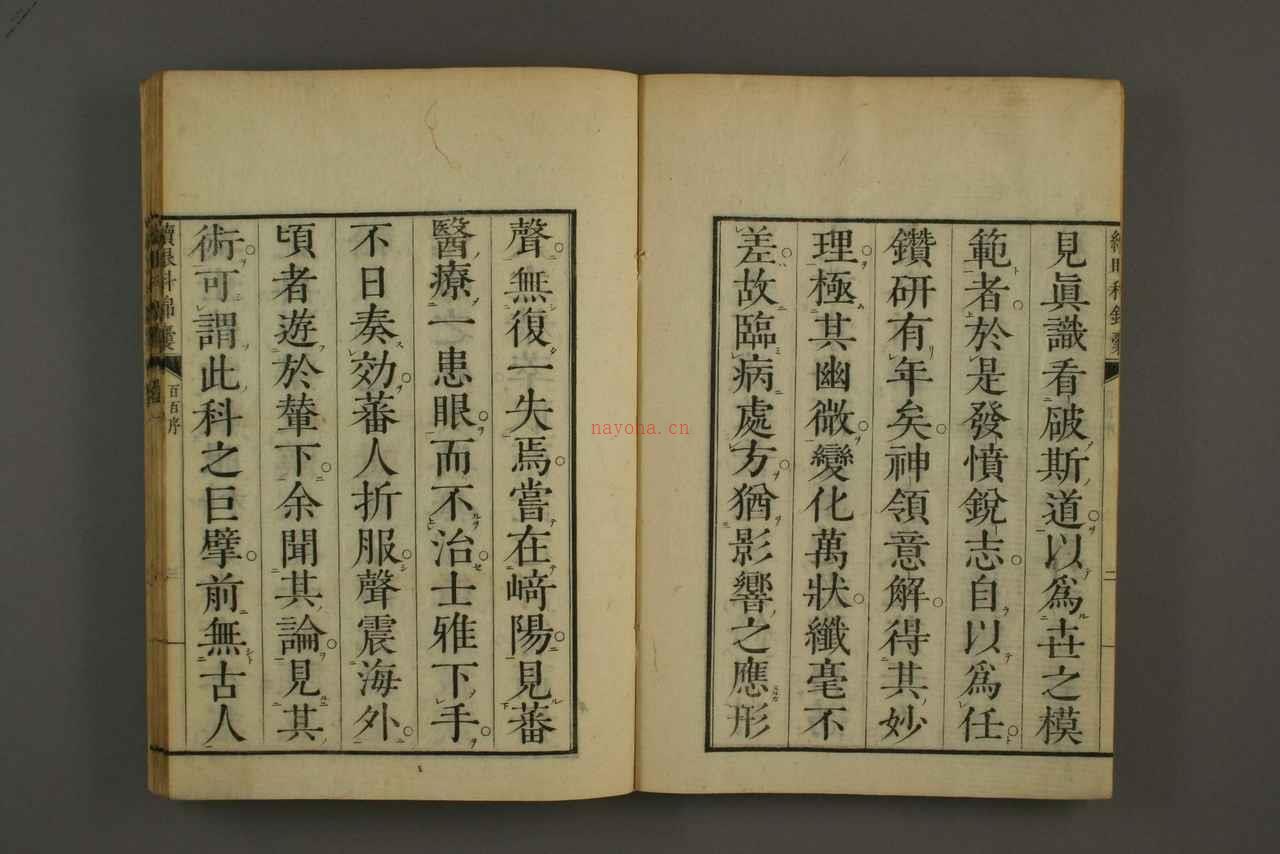 見眞識看破斯道以爲世之模
範者於是發憤銳志自以爲任
鑽研有年矣神領意解得其妙
理極其幽微變化萬狀纖毫不
差故臨病處方猶影響之應形
聲無復一失焉嘗在﨑陽見蕃
醫療一患眼而不治士雅下手
不日奏効蕃人折服聲震海外
頃者遊於輦下余聞其論見其
術可謂此科之巨擘前無古人
續眼科錦囊
百百序
nayona.cn